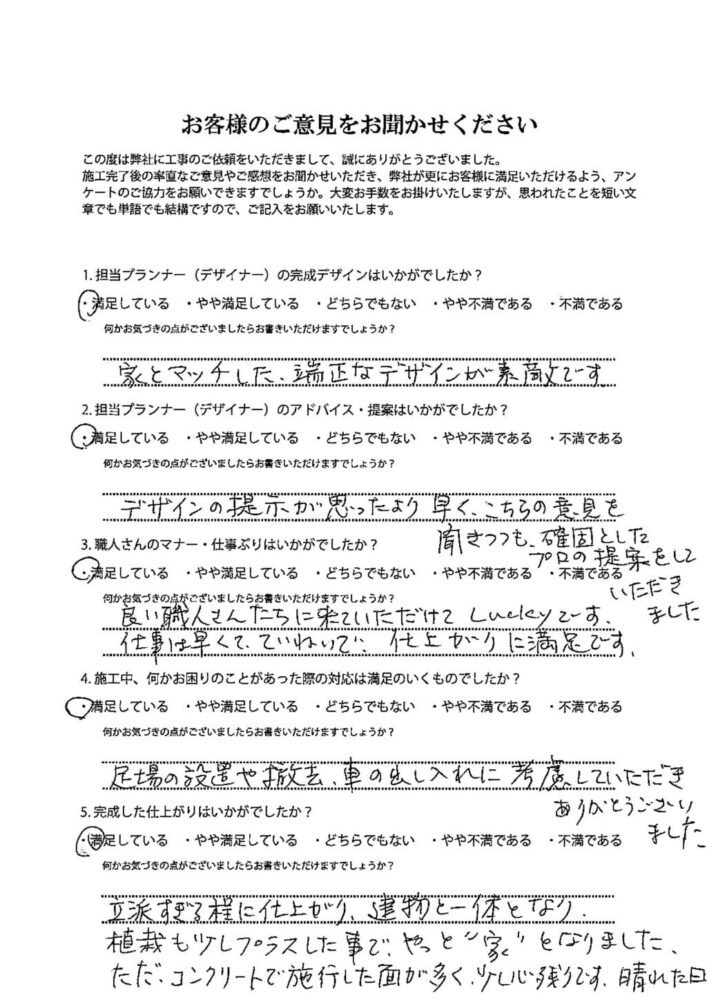 お客様のご意見をお聞かせください
この度は弊社に工事のご依頼をいただきまして、誠にありがとうございました。
施工完了後の率直なご意見やご感想をお聞かせいただき、弊社が更にお客様に満足いただけるよう、アン
ケートのご協力をお願いできますでしょうか。大変お手数をお掛けいたしますが、思われたことを短い文
章でも単語でも結構ですので、ご記入をお願いいたします。
1. 担当プランナー（デザイナー）の完成デザインはいかがでしたか？
・満足している ・やや満足している ・どちらでもない ・やや不満である ・不満である
何かお気づきの点がございましたらお書きいただけますでしょうか？
家とマッチした、端正なデザインが素敵です。
2. 担当プランナー（デザイナー）のアドバイス・提案はいかがでしたか？
・満足している ・やや満足している ・どちらでもない ・やや不満である ・不満である
何かお気づきの点がございましたらお書きいただけますでしょうか？
デザインの提示が思ったより早く、こちらの意見を
聞きつつも、確固とした
プロの提案をして
いただき
ました
3. 職人さんのマナー・仕事ぶりはいかがでしたか？
・満足している ・やや満足している ・どちらでもない ・やや不満である ・不満である
何かお気づきの点がございましたらお書きいただけますでしょうか？
良い職人さんたちに来ていただけてLuckyです。
仕事は早くて、ていねいで、仕上がりに満足です。
4. 施工中、何かお困りのことがあった際の対応は満足のいくものでしたか？
・満足している ・やや満足している ・どちらでもない ・やや不満である ・不満である
何かお気づきの点がございましたらお書きいただけますでしょうか？
足場の設置や撤去、車の出し入れに考慮していただき
ありがとうござい
ました
5. 完成した仕上がりはいかがでしたか？
・満足している ・やや満足している ・どちらでもない ・やや不満である ・不満である
何かお気づきの点がございましたらお書きいただけますでしょうか？
立派すぎる程に仕上がり、建物と一体となり、
植栽も少しプラスした事で、やっと“家”となりました、
ただ、コンクリートで施行した面が多く、少し心残りです、晴れた日